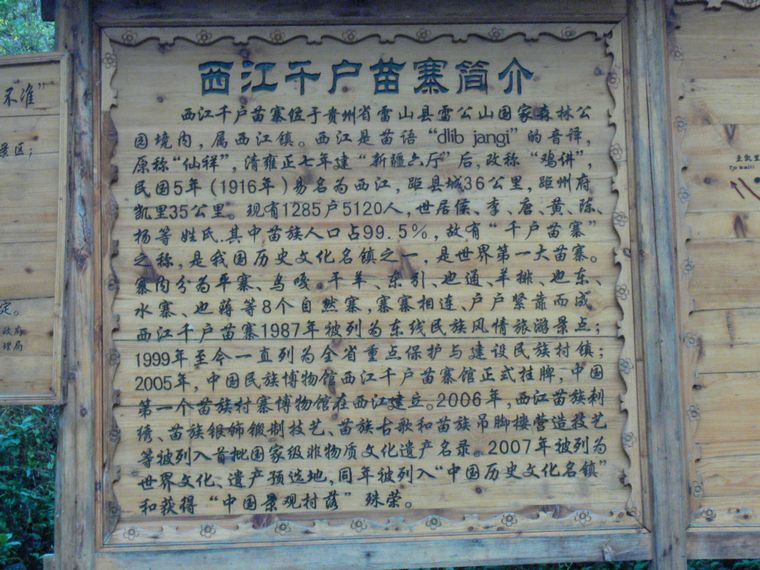 西江千户苗寨简介
西江千户苗寨位于贵州省雷山县雷公山国家森林公
园境内，属西江镇。西江是苗语“dlib jangi”的音译，
原称“仙祥”，清雍正七年建“新疆六厅”后，改称“鸡讲”，
民国5年（1916年）易名为西江，距县城36公里，距州府
凯里35公里。现有1285户5120人，世居侯、李、唐、黄、陈、
杨等姓氏.其中苗族人口占99.5%，故有“千户苗寨”
之称，是我国历史文化名镇之一，是世界第一大苗寨。
寨内分为平寨、乌嘎。干羊、东引、也通、羊排、也东、
水寨、也蒋等8个自然寨，寨寨相连、户户紧靠而成。
西江千户苗寨1987年被列为东线民族风情旅游景点；
1999年至今一直列为全省重点保护与建设民族村镇；
2005年，中国民族博物馆西江千户苗寨馆正式挂牌，中国
第一个苗族村寨博物馆在西江建立。2006年，西江苗族刺
绣、苗族银饰锻制技艺、苗族古歌和苗族吊脚楼营造技艺
等被列入首批国家级非物质文化遗产名录。2007年被列为
世界文化、遗产预选地，同年被列入“中国历史文化名镇”
和获得“中国景观村落”殊荣。
不准”
景区；
定。
政府
理局